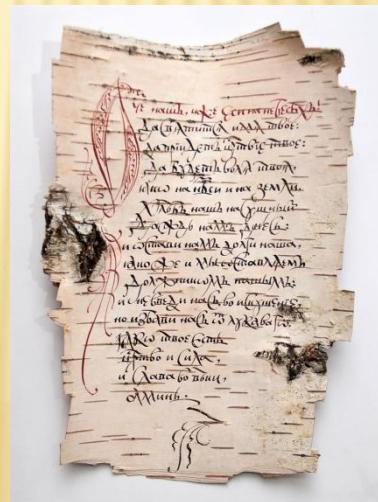 Отче нашъ, иже Єси на небесѣхъ!
Да свѧтитсѧ имѧ твоє:
Да приидетъ црствїє твоє:
Да будетъ волѧ твоѧ,
ѧко на нбси и на земли.
Хлѣбъ нашъ насущный
Даждь намъ днесь
и остави намъ долги наша,
ѧкоже и мы оставлѧемъ
Должникомъ нашымъ:
и не введи насъ во искушенїе,
но избави насъ ѿ лукаваго.
Ѧко твое єсть
црство и сила,
и слава во вѣки,
аминь.